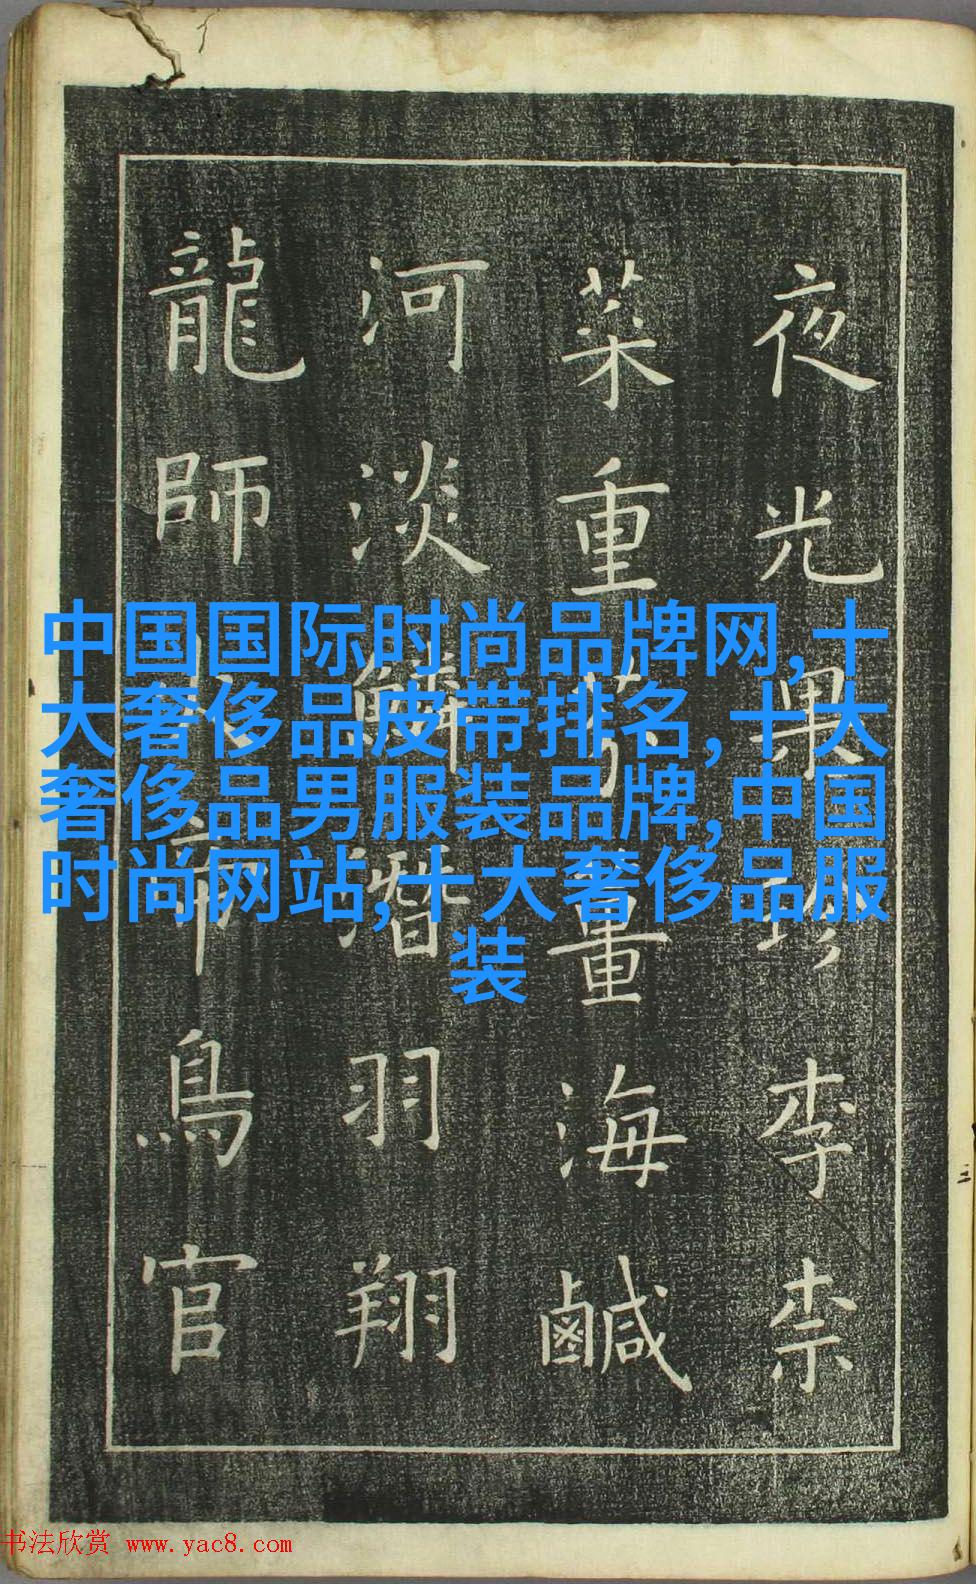 夜光果珍李柰
菜重芥薑海鹹
河淡鱗潛羽翔
龍師火帝鳥官
中国国际时尚品牌网,十
大奢侈品皮带排名,十大
奢侈品男服装品牌,中国
时尚网站,十大奢侈品服
装
书法欣赏 www.yac8.com